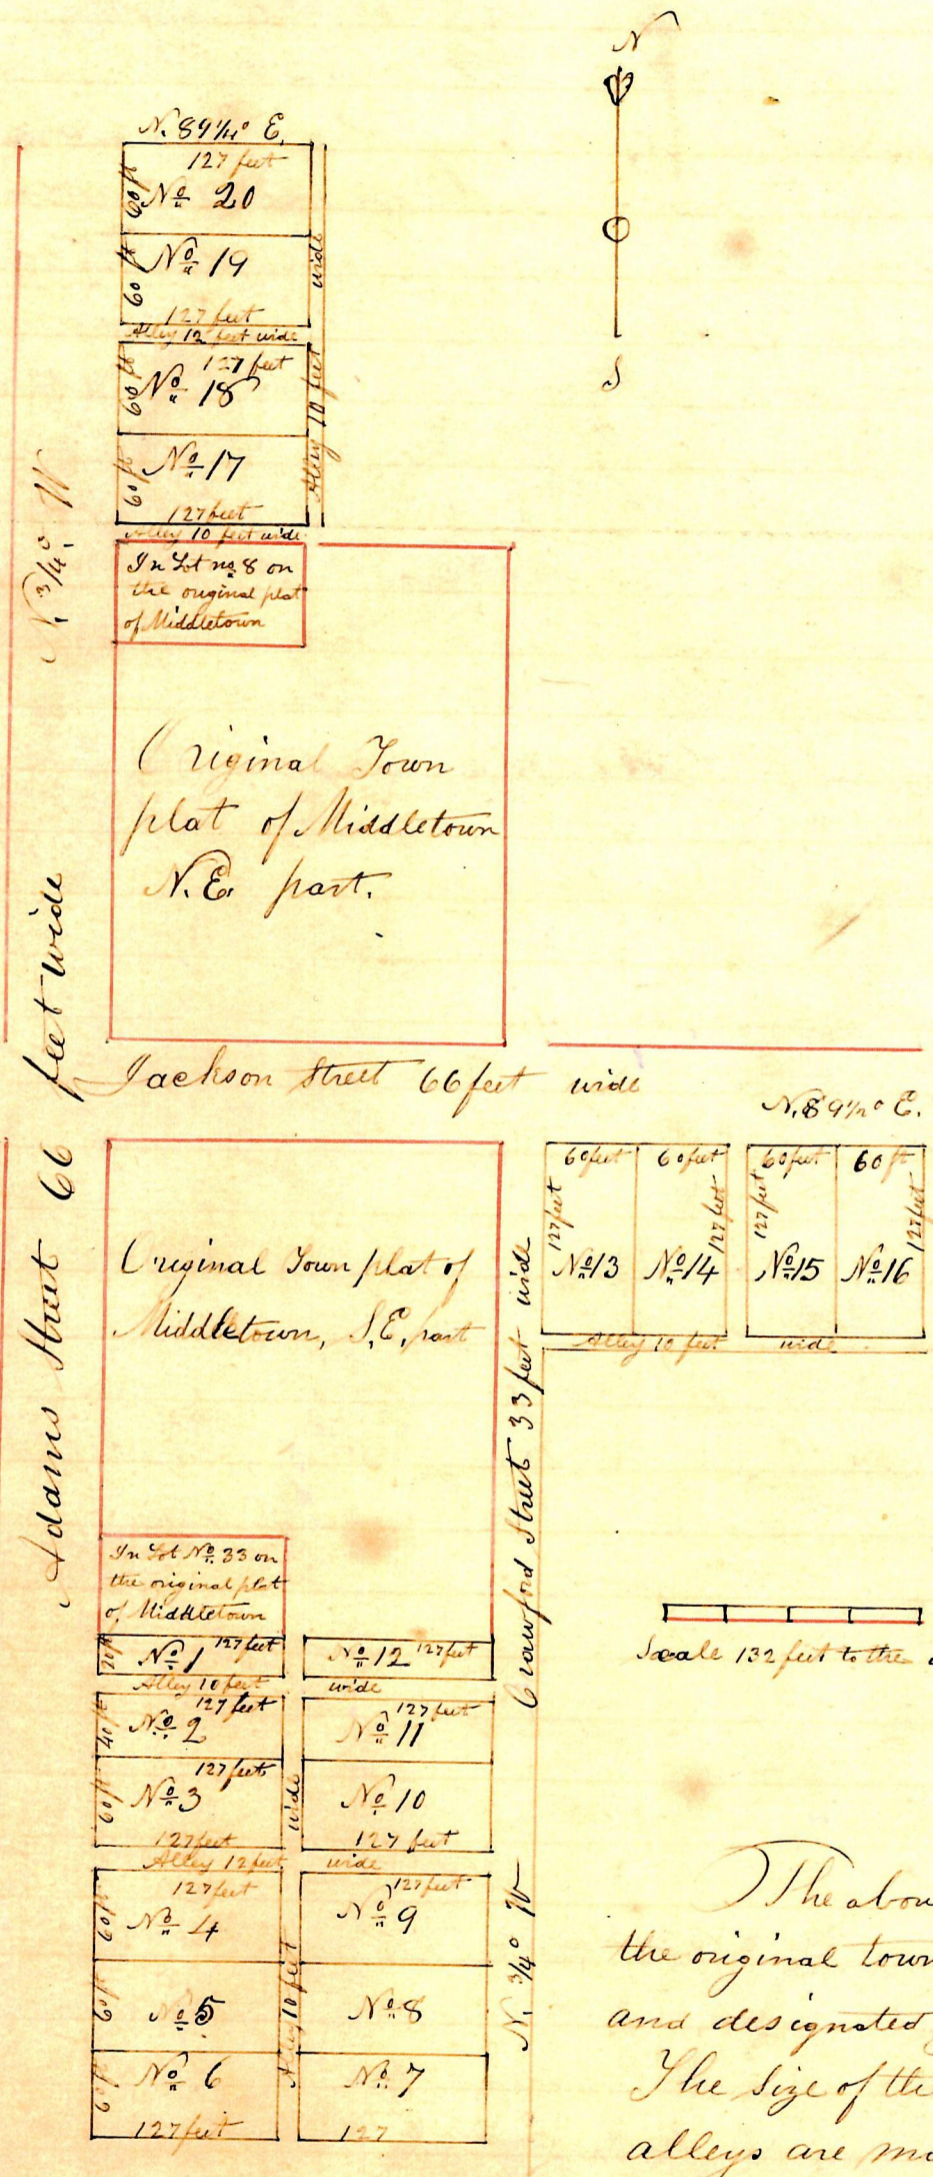 N
S
N. 89 1/4° E.
127 feet
60 ft No 20
60 ft No 19
127 feet
Alley 12 feet wide
127 feet
60 ft No 18
60 ft No 17
127 feet
Alley 10 feet wide
Alley 10 feet wide
In Lot no. 8 on
the original plat
of Middletown
Original Town
plat of Middletown
N.E. part.
Adams Street 66 feet wide N. 3/4° W
Jackson Street 66 feet wide
N. 89 1/2° E.
60 feet 60 feet 60 feet 60 ft
127 feet 127 feet 127 feet 127 feet
No 13 No 14 No 15 No 16
Alley 10 feet wide
Original Town plat of
Middletown, S.E. part
Crawford Street 33 feet wide N. 3/4° W
In Lot No. 33 on
the original plat
of Middletown
No 1 127 feet No 12 127 feet
Alley 10 feet wide
127 feet 127 feet
40 ft No 2 No 11
127 feet
60 ft No 3 No 10
127 feet 127 feet
Alley 12 feet wide
127 feet 127 feet
60 ft No 4 No 9
60 ft No 5 No 8
60 ft No 6 No 7
127 feet 127
Alley 10 feet wide
Scale 132 feet to the
The abov
the original town
and designated
The Size of the
alleys are ma